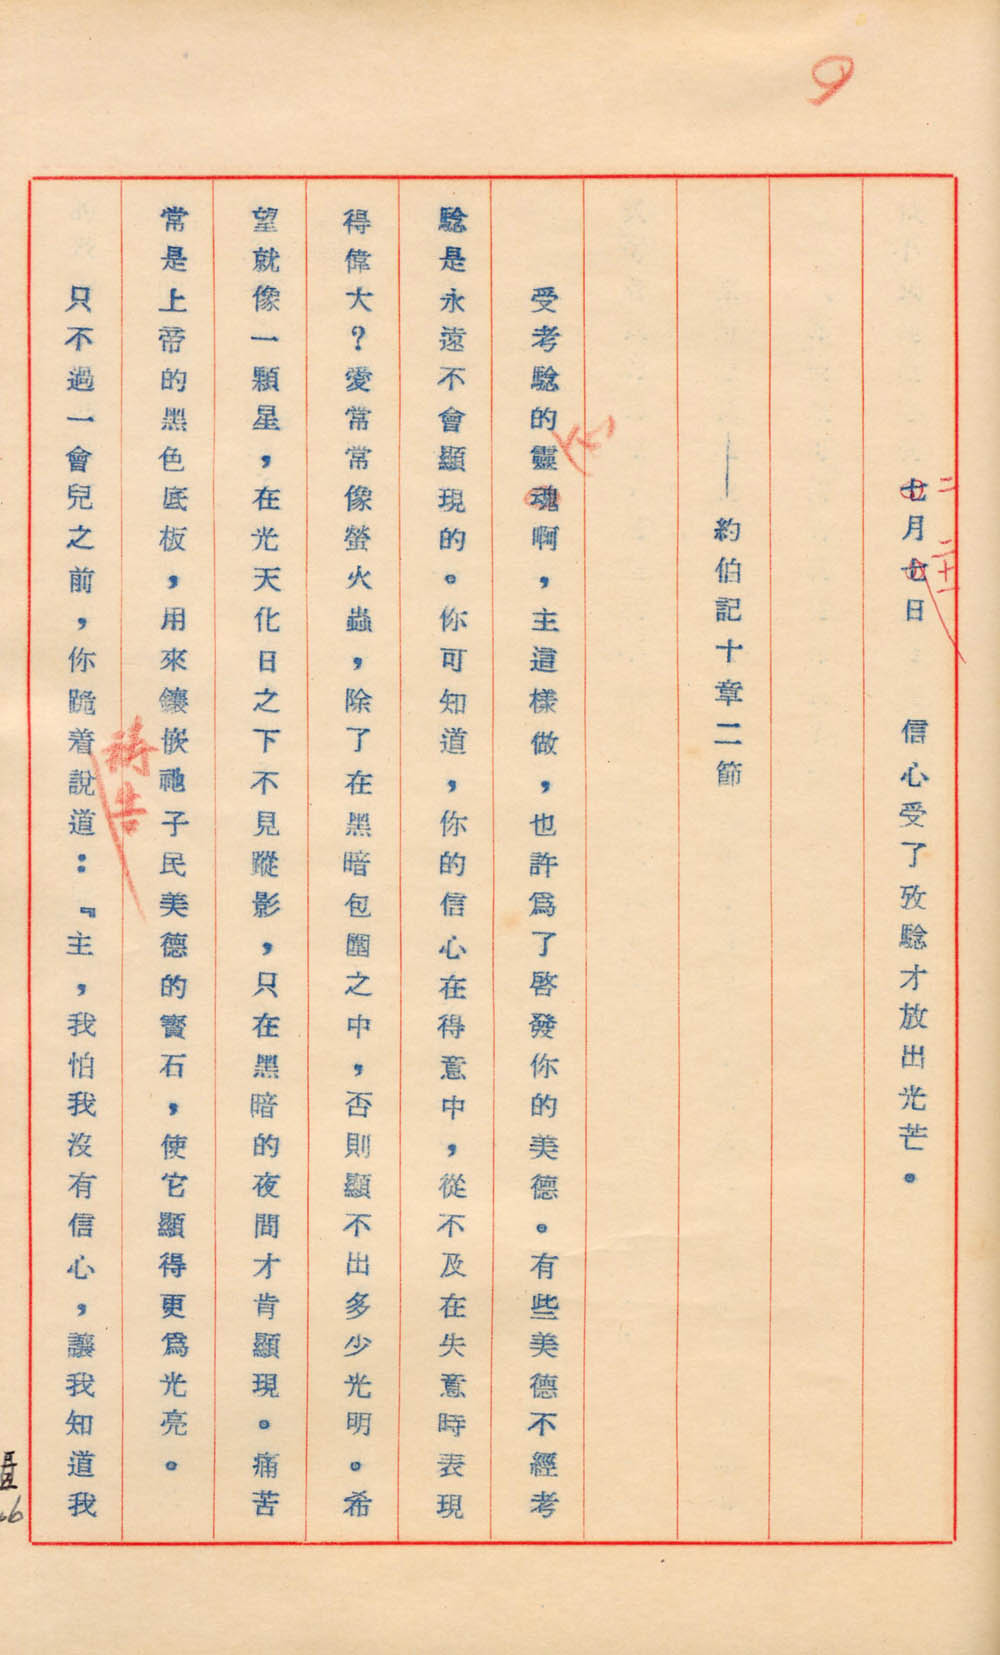 9
七月七日　信心受了攷騐才放出光芒。
二　二十二
——約伯記十章二節
受考騐的靈魂啊,主這樣做,也許為了啓發你的美德。有些美德不經考
心
騐是永遠不會顯現的。你可知道,你的信心在得意中,從不及在失意時表現
得偉大?愛常常像螢火蟲,除了在黑暗包圍之中,否則顯不出多少光明。希
望就像一顆星,在光天化日之下不見蹤影,只在黑暗的夜間才肯顯現。痛苦
常是上帝的黑色底板,用來鑲嵌祂子民美德的寳石,使它顯得更為光亮。
禱告
只不過一會兒之前,你跪着說道:『主,我怕我沒有信心,讓我知道我